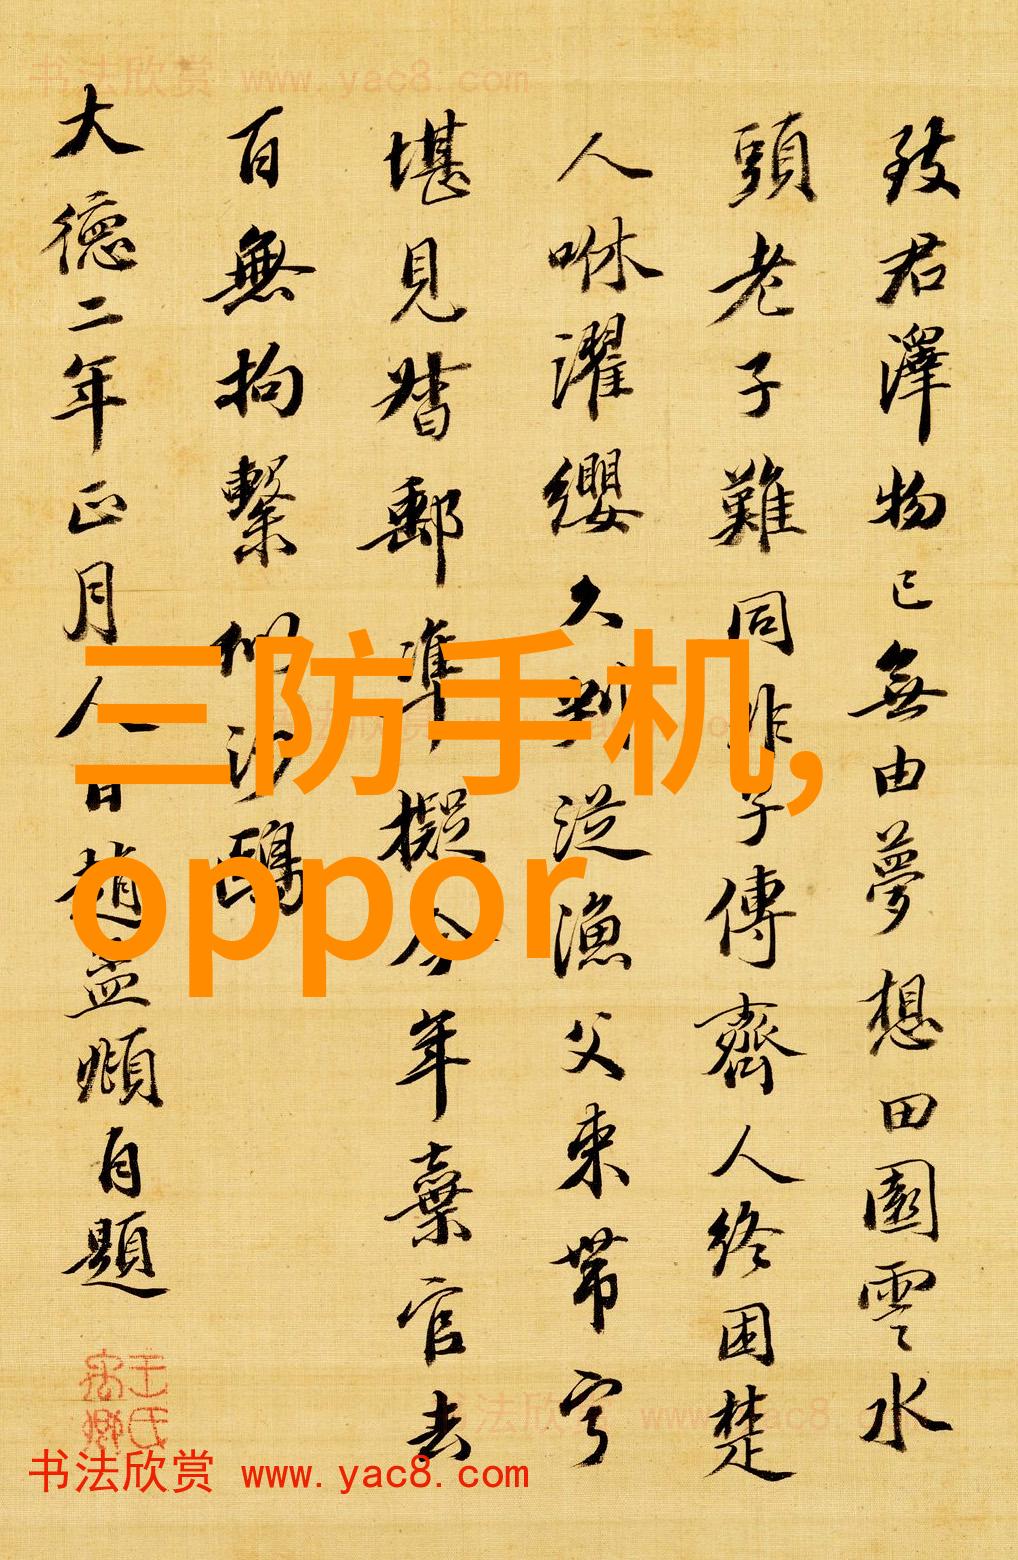 书法欣赏 www.yac8.com
致君澤物已無由夢想田園雲水
頭老子難同非子傳齊人終困楚
人咻濯纓久判從漁父束帶寧
堪見督郵準擬今年棄官去
百無拘繫似沙鷗
大德二年正月人日趙孟頫自題
三防手机,
oppor
书法欣赏 www.yac8.com